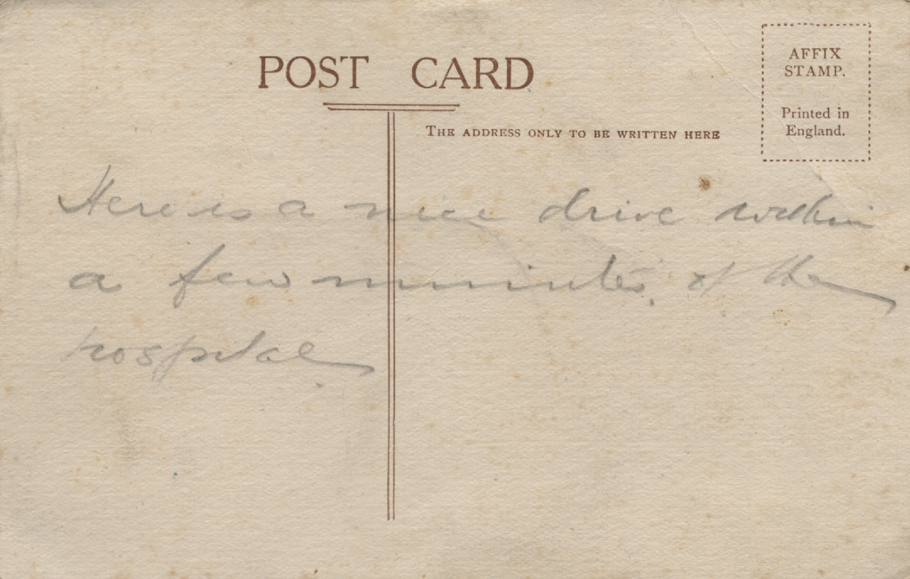 POST CARD
AFFIX
STAMP.
Printed in
England.
THE ADDRESS ONLY TO BE WRITTEN HERE
Here is a nice drive within
a few minutes of the
hospital